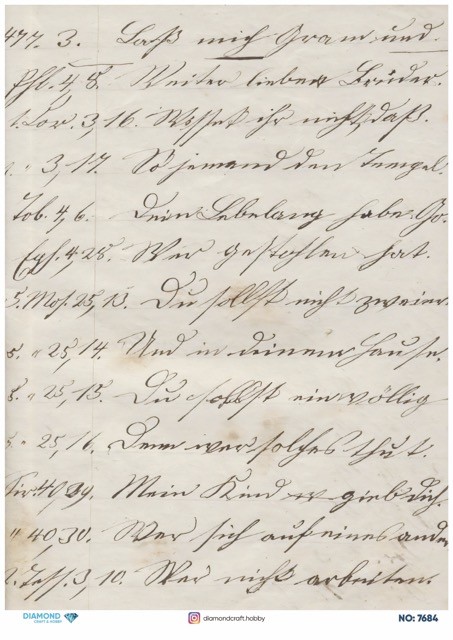 477. 3. Laß mich Gram und
Phl. 4, 8. Weiter lieben Brüder.
1. Cor. 3, 16. Wisset ihr nicht, daß.
" 3, 17. So jemand den Tempel.
Tob. 4, 6. Dein Lebelang habe Go.
Eph. 4, 28. Wer gestohlen hat.
5. Mos. 25, 13. Du sollst nicht zweier
5. " 25, 14. Und in deinem Hause.
5. " 25, 15. Du sollst ein völlig
5. " 25, 16. Denn wer solches thut.
Sir. 40, 29. Mein Kind gieb dich.
" 40, 30. Wer sich auf eines ander
2. Tess. 3, 10. Wer nicht arbeiten.
DIAMOND
CRAFT & HOBBY
diamondcraft.hobby
NO: 7684